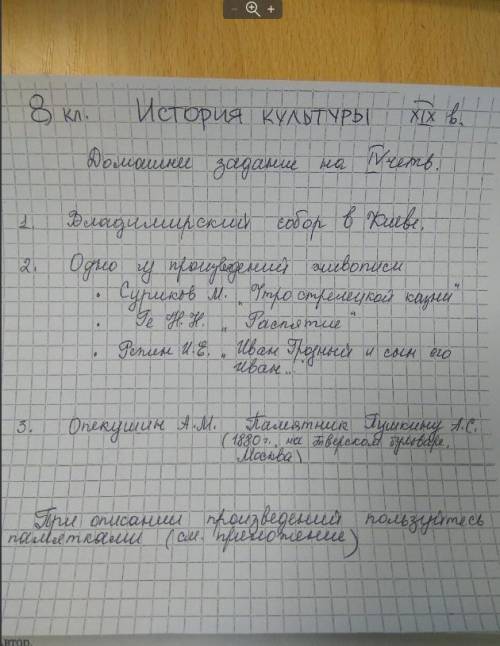 8 кл. История культуры XIX в.
Домашнее задание на IV четв.
1. Владимирский собор в Киеве.
2. Одно из произведений живописи
• Суриков М. „Утро стрелецкой казни"
• Ге Н.Н. „Распятие"
• Репин И.Е. „Иван Грозный и сын его
Иван..."
3. Опекушин А.М. Памятник Пушкину А.С.
(1880 г. на Тверском бульваре,
Москва)
При описании произведений пользуйтесь
памятками (см. приложение)
Автор